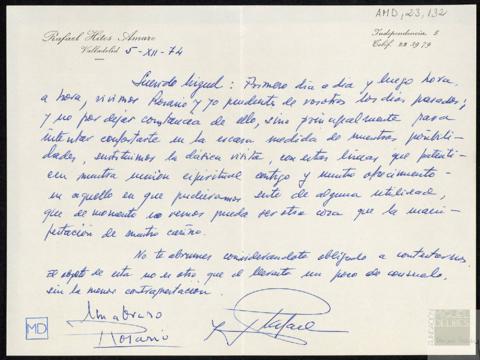 AMD, 23, 132
Rafael Hitos Amaro
Valladolid 5-XII-74
Independencia 5
Telef. 22 19 79
Querido Miguel: Primero día a día y luego hora
a hora, vivimos Rosario y yo pendientes de vosotros los días pasados;
y no por dejar constancia de ello, sino principalmente para
intentar confortarte en la escasa medida de nuestras posibili-
dades, sustituimos la clásica visita, con estas líneas que patenti-
cen nuestra unión espiritual contigo y nuestro ofrecimiento
en aquello en que pudiéramos serte de alguna utilidad,
que de momento no vemos pueda ser otra cosa que la mani-
festación de nuestro cariño.
No te abrumes considerándote obligado a contestarnos.
El objeto de esta no es otro que el llevarte un poco de consuelo,
sin la menor contraprestación.
Un abrazo
Rosario
y Rafael
MD